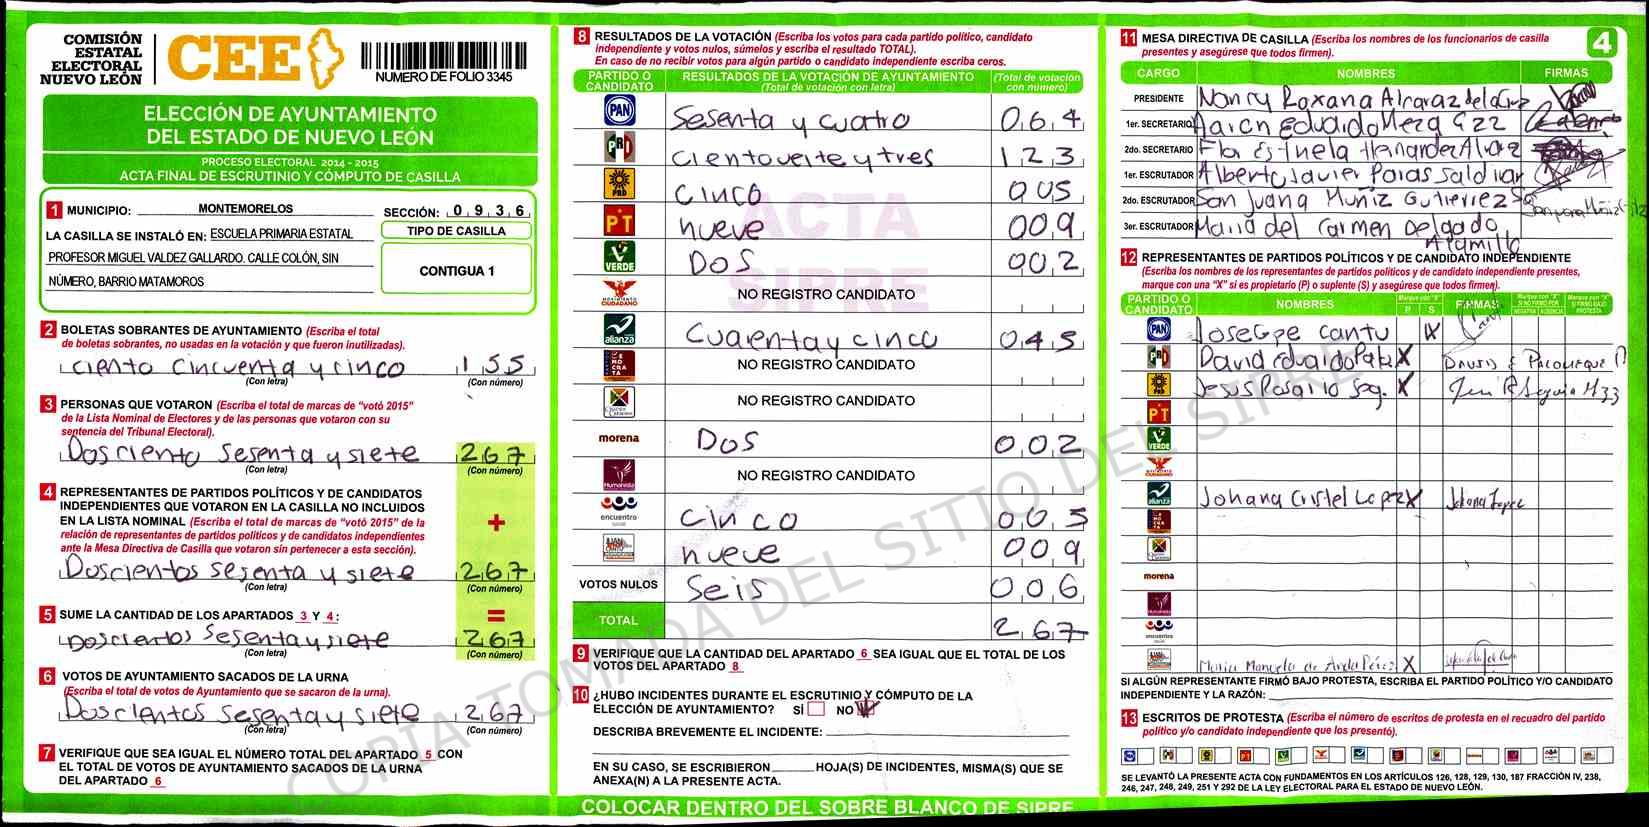 COMISIÓN
ESTATAL
ELECTORAL
NUEVO LEÓN
CEE
NUMERO DE FOLIO 3345
ELECCIÓN DE AYUNTAMIENTO
DEL ESTADO DE NUEVO LEÓN
PROCESO ELECTORAL 2014 - 2015
ACTA FINAL DE ESCRUTINIO Y CÓMPUTO DE CASILLA
1 MUNICIPIO: MONTEMORELOS SECCIÓN: 0 9 3 6
LA CASILLA SE INSTALÓ EN: ESCUELA PRIMARIA ESTATAL
PROFESOR MIGUEL VALDEZ GALLARDO. CALLE COLÓN, SIN
NÚMERO, BARRIO MATAMOROS
TIPO DE CASILLA
CONTIGUA 1
2 BOLETAS SOBRANTES DE AYUNTAMIENTO (Escriba el total
de boletas sobrantes, no usadas en la votación y que fueron inutilizadas).
ciento cincuenta y cinco 155
(Con letra) (Con número)
3 PERSONAS QUE VOTARON (Escriba el total de marcas de "votó 2015"
de la Lista Nominal de Electores y de las personas que votaron con su
sentencia del Tribunal Electoral).
Dosciento sesenta y siete 267
(Con letra) (Con número)
4 REPRESENTANTES DE PARTIDOS POLÍTICOS Y DE CANDIDATOS
INDEPENDIENTES QUE VOTARON EN LA CASILLA NO INCLUIDOS
EN LA LISTA NOMINAL (Escriba el total de marcas de "votó 2015" de la
relación de representantes de partidos políticos y de candidatos independientes
ante la Mesa Directiva de Casilla que votaron sin pertenecer a esta sección).
+
Doscientos sesenta y siete 267
(Con letra) (Con número)
5 SUME LA CANTIDAD DE LOS APARTADOS 3 Y 4: =
Doscientos sesenta y siete 267
(Con letra) (Con número)
6 VOTOS DE AYUNTAMIENTO SACADOS DE LA URNA
(Escriba el total de votos de Ayuntamiento que se sacaron de la urna).
Doscientos sesenta y siete 267
(Con letra) (Con número)
7 VERIFIQUE QUE SEA IGUAL EL NÚMERO TOTAL DEL APARTADO 5 CON
EL TOTAL DE VOTOS DE AYUNTAMIENTO SACADOS DE LA URNA
DEL APARTADO 6
8 RESULTADOS DE LA VOTACIÓN (Escriba los votos para cada partido político, candidato
independiente y votos nulos, súmelos y escriba el resultado TOTAL).
En caso de no recibir votos para algún partido o candidato independiente escriba ceros.
PARTIDO O CANDIDATO RESULTADOS DE LA VOTACIÓN DE AYUNTAMIENTO (Total de votación con letra) (Total de votación con número)
PAN Sesenta y cuatro 064
PRI cientoveite y tres 123
PRD cinco 005
PT nueve 009
VERDE Dos 002
MOVIMIENTO CIUDADANO NO REGISTRO CANDIDATO
alianza Cuarenta y cinco 045
DEMOCRATA NO REGISTRO CANDIDATO
NO REGISTRO CANDIDATO
morena Dos 002
Humanista NO REGISTRO CANDIDATO
encuentro social cinco 005
nueve 009
VOTOS NULOS Seis 006
TOTAL 267
9 VERIFIQUE QUE LA CANTIDAD DEL APARTADO 6 SEA IGUAL QUE EL TOTAL DE LOS
VOTOS DEL APARTADO 8
10 ¿HUBO INCIDENTES DURANTE EL ESCRUTINIO Y CÓMPUTO DE LA
ELECCIÓN DE AYUNTAMIENTO? SÍ NO
DESCRIBA BREVEMENTE EL INCIDENTE:
EN SU CASO, SE ESCRIBIERON HOJA(S) DE INCIDENTES, MISMA(S) QUE SE
ANEXA(N) A LA PRESENTE ACTA.
COLOCAR DENTRO DEL SOBRE BLANCO DE SIPRE
ACTA
SIPRE
COPIA TOMADA DEL SITIO DEL SIPRE
11 MESA DIRECTIVA DE CASILLA (Escriba los nombres de los funcionarios de casilla
presentes y asegúrese que todos firmen).
4
CARGO NOMBRES FIRMAS
PRESIDENTE Nancy Roxana Alcaraz de la Cruz
1er. SECRETARIO Aaron Eduardo Meza Gzz
2do. SECRETARIO Flor Estuela Hernandez Alvarz
1er. ESCRUTADOR Alberto Javier Paras Saldivar
2do. ESCRUTADOR San Juana Muñiz Gutierrez
3er. ESCRUTADOR Maria del Carmen Delgado
Alamillo
12 REPRESENTANTES DE PARTIDOS POLÍTICOS Y DE CANDIDATO INDEPENDIENTE
(Escriba los nombres de los representantes de partidos políticos y de candidato independiente presentes,
marque con una "X" si es propietario (P) o suplente (S) y asegúrese que todos firmen).
PARTIDO O CANDIDATO NOMBRES Marque con "X" P S FIRMAS Marque con "X" SI NO FIRMÓ POR NEGATIVA AUSENCIA Marque con "X" SI FIRMÓ BAJO PROTESTA
PAN Jose Gpe Cantu X
PRI David Eduardo X
PRD Jesus Rosario Seg. X
PT
VERDE
MOVIMIENTO CIUDADANO
alianza Johana Cristel Lopez X Johana Lopez
morena
encuentro social
Maria Manuela de Avila Pérez X
SI ALGÚN REPRESENTANTE FIRMÓ BAJO PROTESTA, ESCRIBA EL PARTIDO POLÍTICO Y/O CANDIDATO
INDEPENDIENTE Y LA RAZÓN:
13 ESCRITOS DE PROTESTA (Escriba el número de escritos de protesta en el recuadro del partido
político y/o candidato independiente que los presentó).
SE LEVANTÓ LA PRESENTE ACTA CON FUNDAMENTOS EN LOS ARTÍCULOS 126, 128, 129, 130, 187 FRACCIÓN IV, 238,
246, 247, 248, 249, 251 Y 292 DE LA LEY ELECTORAL PARA EL ESTADO DE NUEVO LEÓN.